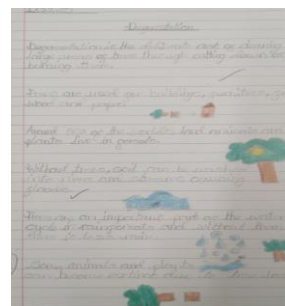 Deforestation
Deforestation is the deliberate act of clearing
large areas of trees through cutting down or
burning them.
Trees are used for buildings, furnitures,
wood and paper.
Around 80% of the world's land animals and
plants live in forests.
Without trees, soil can be washed
into rivers and streams causing
floods.
Trees are an important part of the water
cycle in rainforests and without trees
there is less rain.
Some animals and plants
can become extinct due to tree loss